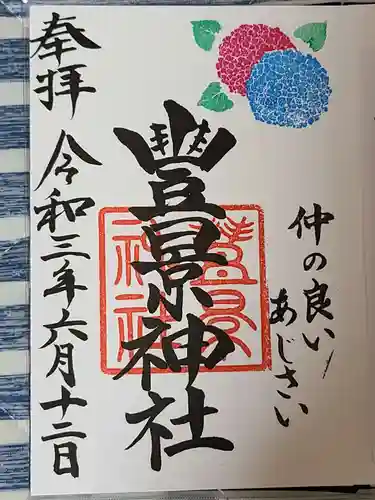 仲の良い
あじさい
豊景神社
豊景
神社
奉拝 令和三年六月十二日